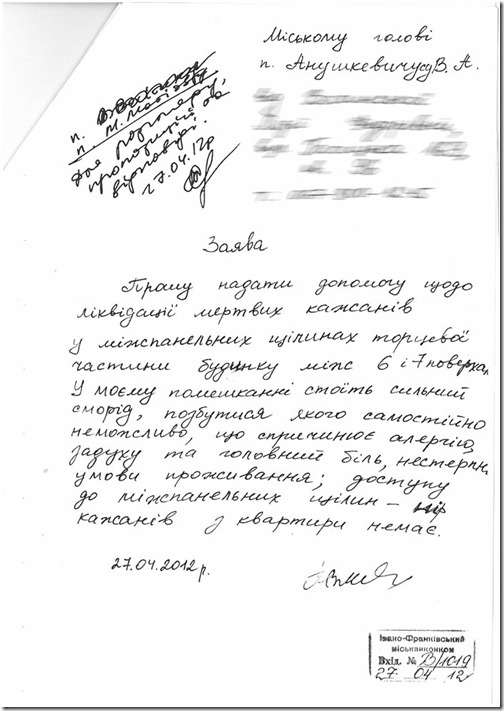 Міському голові
п. Анушкевичусу В. А.
п.
п. М.
для розгляду,
пропозицій та
відповіді.
27.04.12р
Заява
Прошу надати допомогу щодо
ліквідації мертвих кажанів
у міжпанельних щілинах торцевої
частини будинку між 6 і 7 поверхами
У моєму помешканні стоїть сильний
сморід, позбутися якого самостійно
неможливо, що спричинює алергію,
задуху та головний біль, нестерпні
умови проживання; доступу
до міжпанельних щілин –
кажанів з квартири немає.
27.04.2012р.
Івано-Франківський
міськвиконком
Вхід. № В/1019
27. 04 12